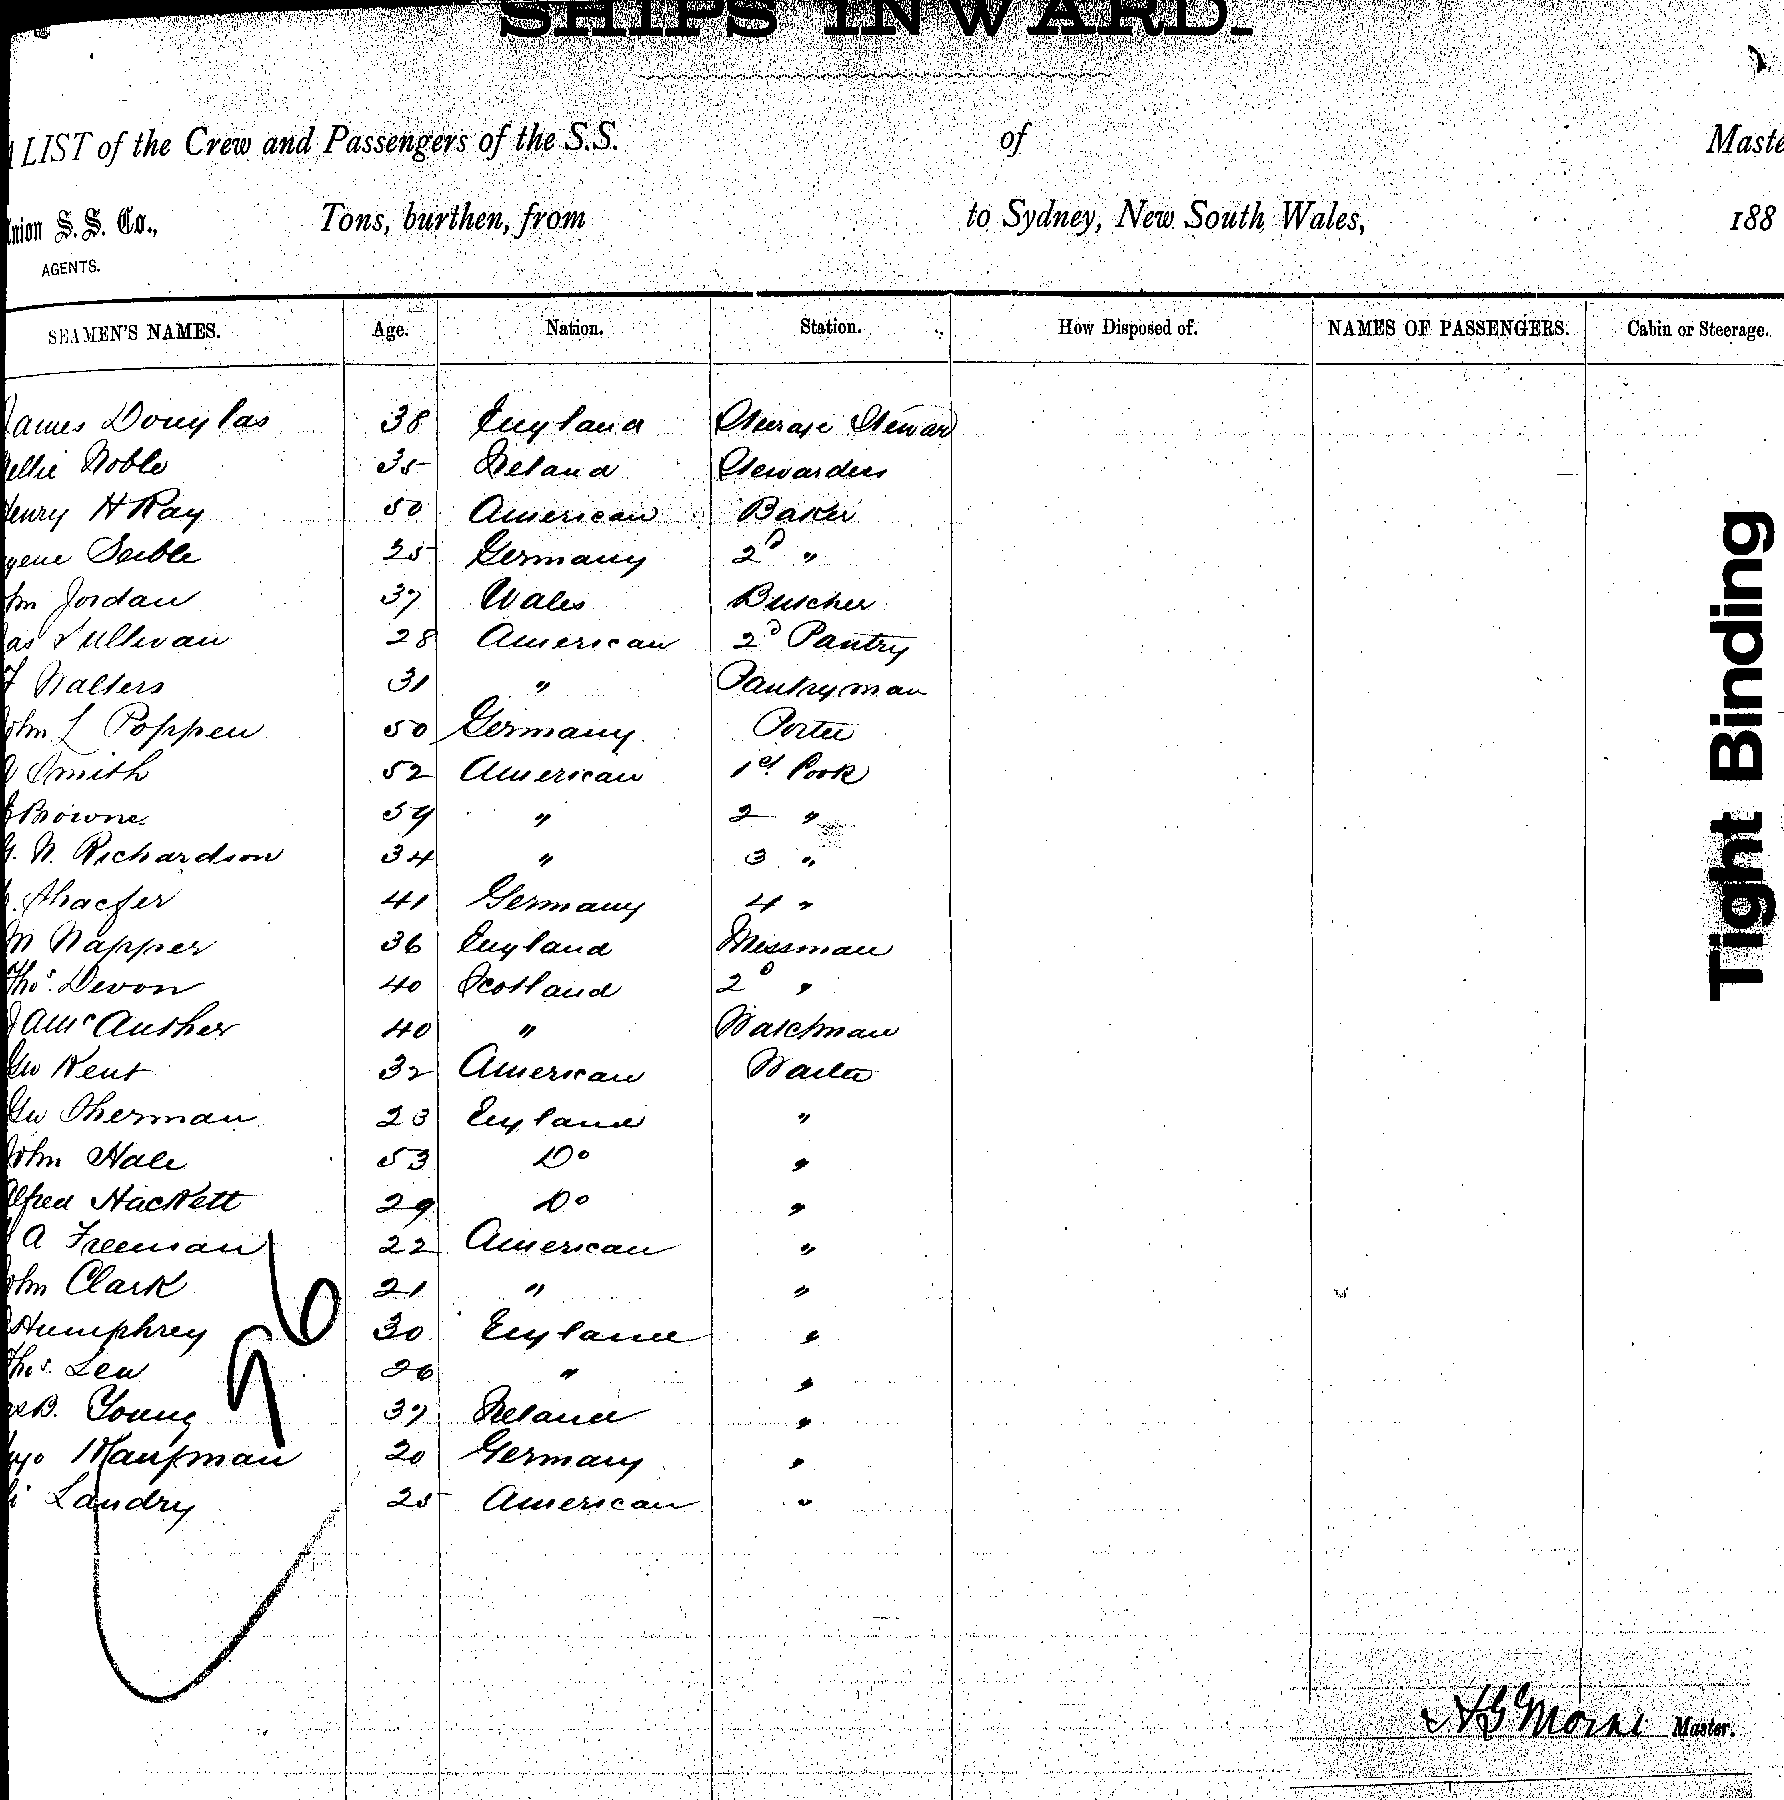 SHIPS INWARD.
LIST of the Crew and Passengers of the S.S. of Maste
Union S. S. Co., Tons, burthen, from to Sydney, New South Wales, 188
AGENTS.
SEAMEN'S NAMES. Age. Nation. Station. How Disposed of. NAMES OF PASSENGERS. Cabin or Steerage.
James Douglas 38 England Steerage Steward
ellie Noble 35 Ireland Stewardess
Henry H Ray 50 American Baker
gene Seible 25 Germany 2d "
Jordan 37 Wales Butcher
as Sullivan 28 American 2d Pantry
Walters 31 " Pantryman
John L Poppen 50 Germany Porter
Smith 52 American 1st Cook
Browne 59 " 2 "
G. W. Richardson 34 " 3 "
Shaefer 41 Germany 4 "
M Napper 36 England Messman
Thos. Devon 40 Scotland 2d "
McAusher 40 " Watchman
Geo Kent 32 American Waiter
Geo Sherman 23 England "
John Hale 53 Do "
Alfred Hackett 29 Do "
A Freeman 22 American "
John Clark 21 " "
Humphrey 30 England "
Thos. Lea 26 " "
B. Young 37 Ireland "
Kaufman 20 Germany "
Landry 25 American "
96
H G Morse Master.
Tight Binding